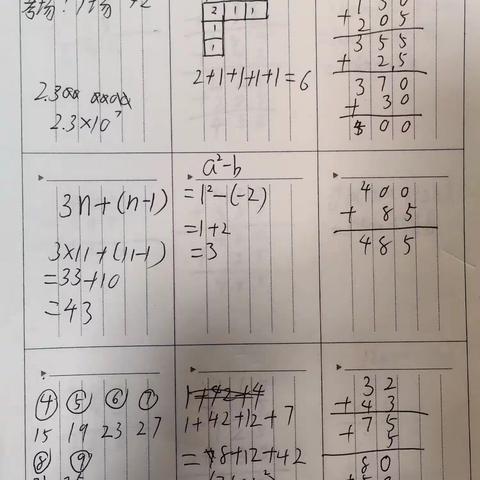 2 1 1
1
1
2+1+1+1+1=6
2.3×10⁷
+ 205
355
+ 25
370
+ 30
400
3n+(n-1)
3×11+(11-1)
=33+10
=43
a²-b
=1²-(-2)
=1+2
=3
400
+ 85
485
④ ⑤ ⑥ ⑦
15 19 23 27
⑧ ⑨
1+42+12+7
=8+12+42
32
+ 43
75
+ 5
80